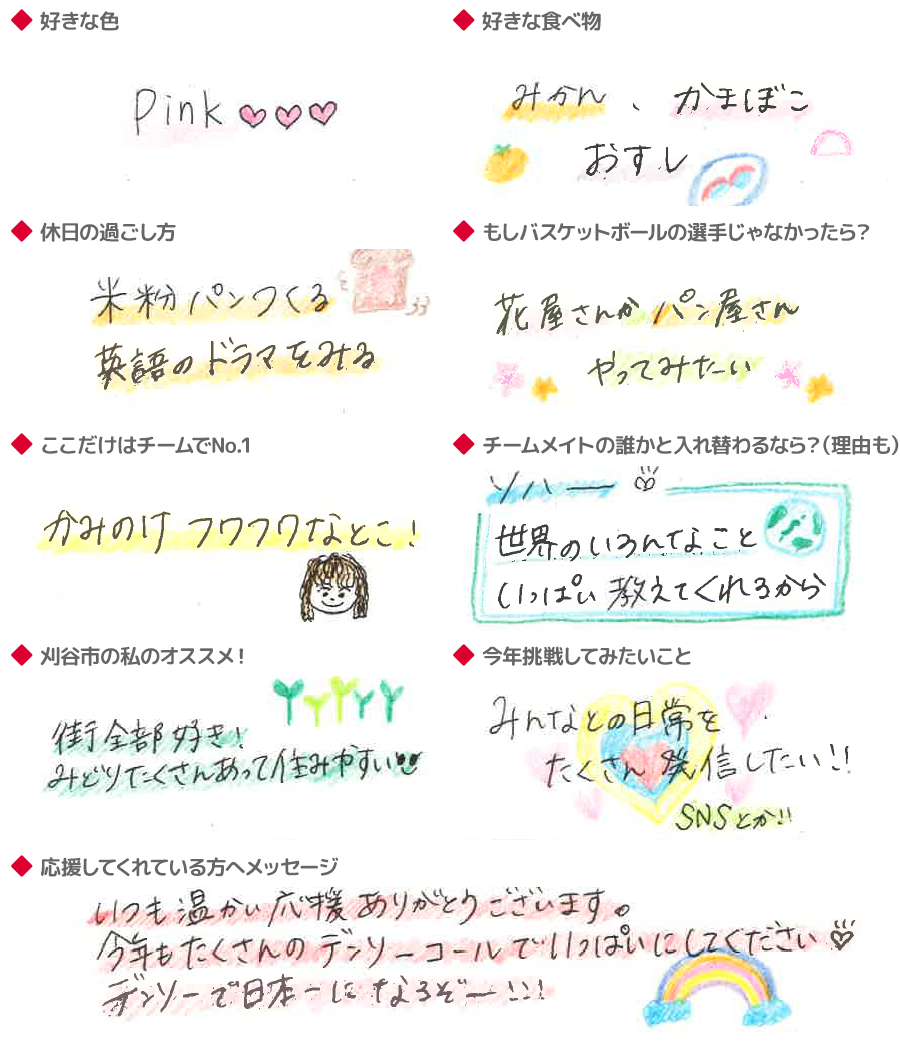 好きな色
Pink♡♡♡
好きな食べ物
みかん、かまぼこ
おすし
休日の過ごし方
米粉パンつくる
英語のドラマをみる
もしバスケットボールの選手じゃなかったら?
花屋さんか パン屋さん
やってみたい
ここだけはチームでNo.1
かみのけ フワフワなとこ!
チームメイトの誰かと入れ替わるなら?(理由も)
ソハー♡
世界のいろんなこと
いっぱい教えてくれるから
刈谷市の私のオススメ!
街全部好き!
みどりたくさんあって住みやすい
今年挑戦してみたいこと
みんなとの日常を
たくさん発信したい!!
SNSとか!!
応援してくれている方へメッセージ
いつも温かい応援ありがとうございます。
今年もたくさんのデンソーコールでいっぱいにしてください♡
デンソーで日本一になるぞー!!!